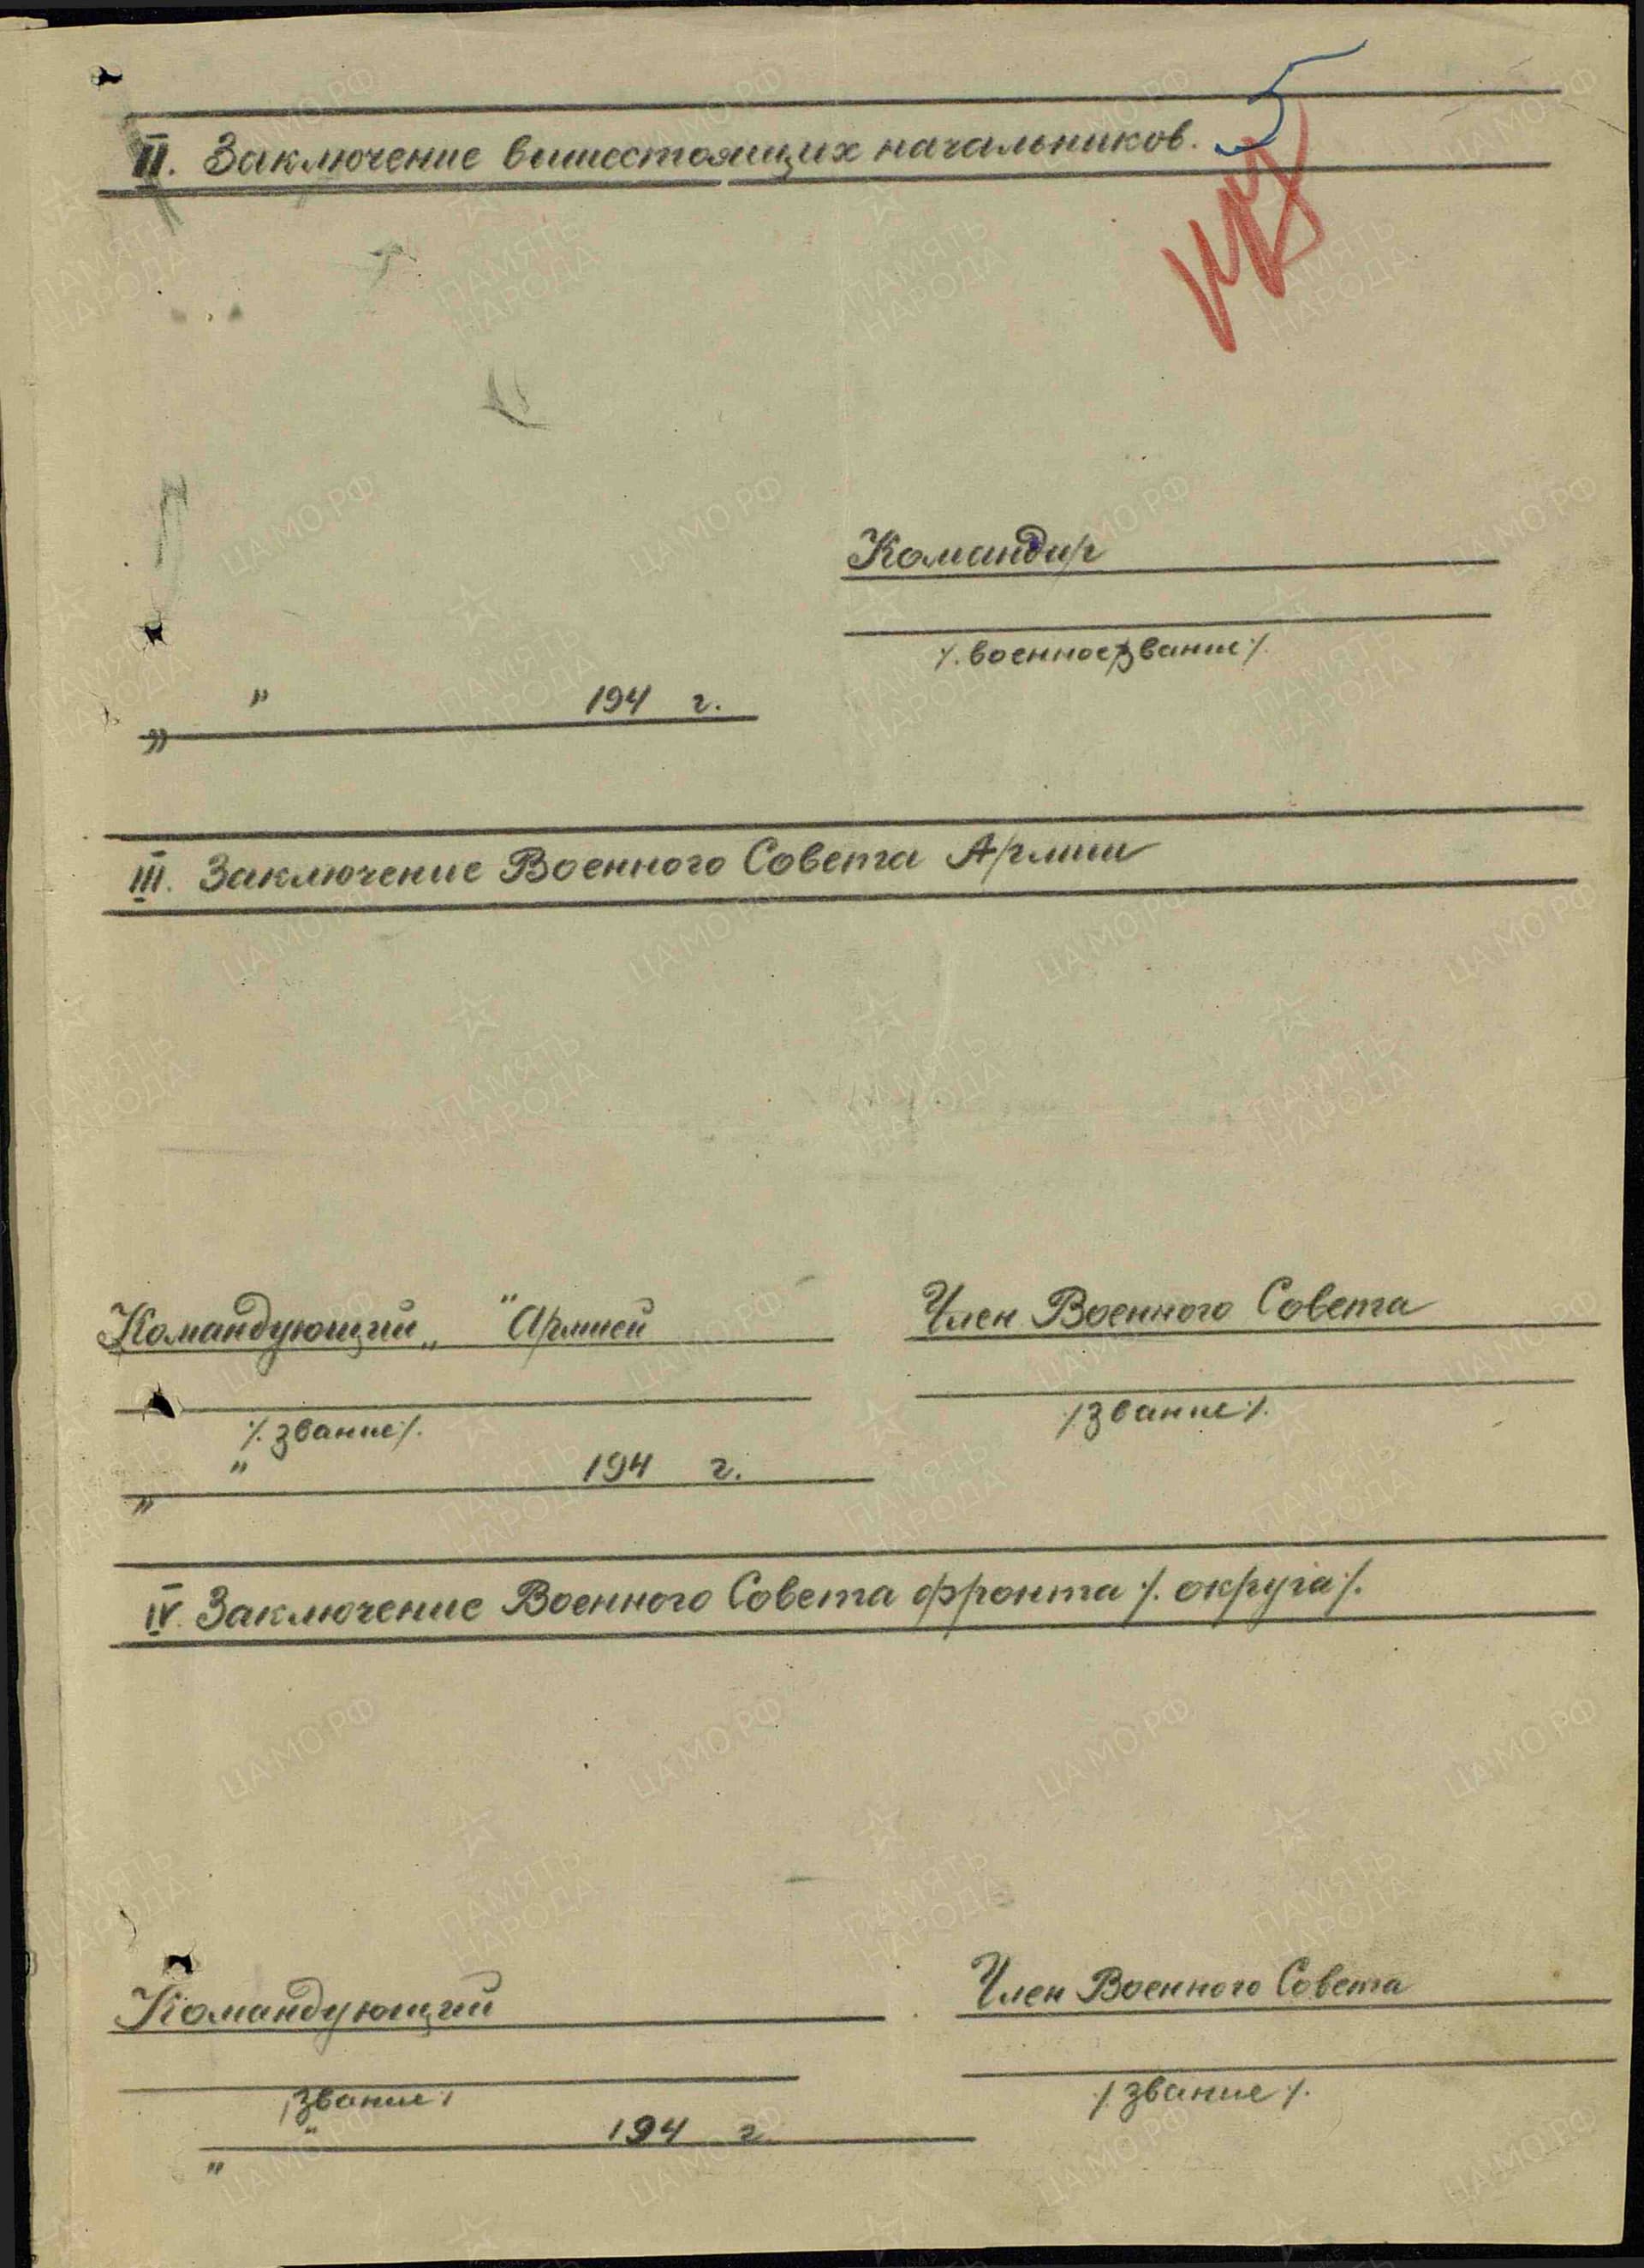 5
II. Заключение вышестоящих начальников.
Командир
/. военное звание /.
" " 194 г.
III. Заключение Военного Совета Армии
Командующий " " Армией
Член Военного Совета
/. звание /.
/ звание /.
" " 194 г.
IV. Заключение Военного Совета фронта /. округа /.
Командующий
Член Военного Совета
/ звание /
/ звание /.
" " 194 г.